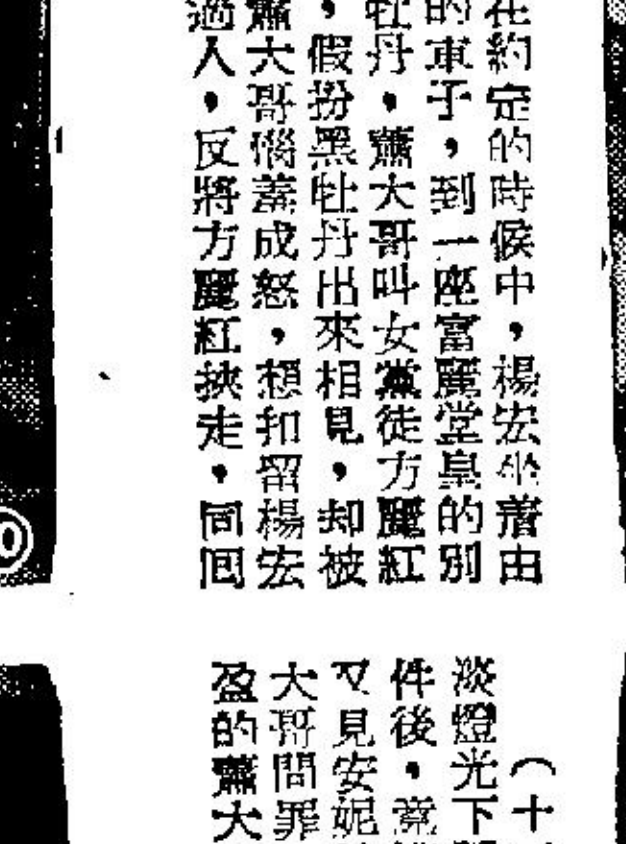 在約定的時候中，楊宏坐着由
的車子，到一座富麗堂皇的別
牡丹，蕭大哥叫女黨徒方麗紅
，假扮黑牡丹出來相見，却被
蕭大哥惱羞成怒，想扣留楊宏
過人，反將方麗紅挾走，同回
（十
淡燈光下
件後，竟
又見安妮
大哥問罪
盈的蕭大